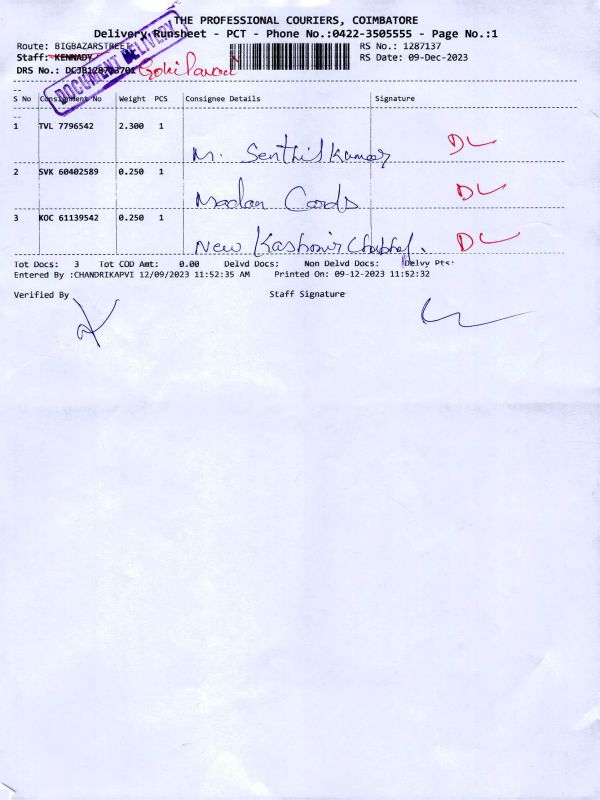 THE PROFESSIONAL COURIERS, COIMBATORE
Delivery Runsheet - PCT - Phone No.:0422-3505555 - Page No.:1
Route: BIGBAZARSTREET RS No.: 1287137
Staff: KENNADY RS Date: 09-Dec-2023
DRS No.:
DOCUMENT DELIVERY
S No Consignment No Weight PCS Consignee Details Signature
1 TVL 7796542 2.300 1 M. Senthil Kumar DL
2 SVK 60402589 0.250 1 Madan Cards DL
3 KOC 61139542 0.250 1 New Kashmir DL
Tot Docs: 3 Tot COD Amt: 0.00 Delvd Docs: Non Delvd Docs: Delvy Pts:
Entered By :CHANDRIKAPVI 12/09/2023 11:52:35 AM Printed On: 09-12-2023 11:52:32
Verified By Staff Signature